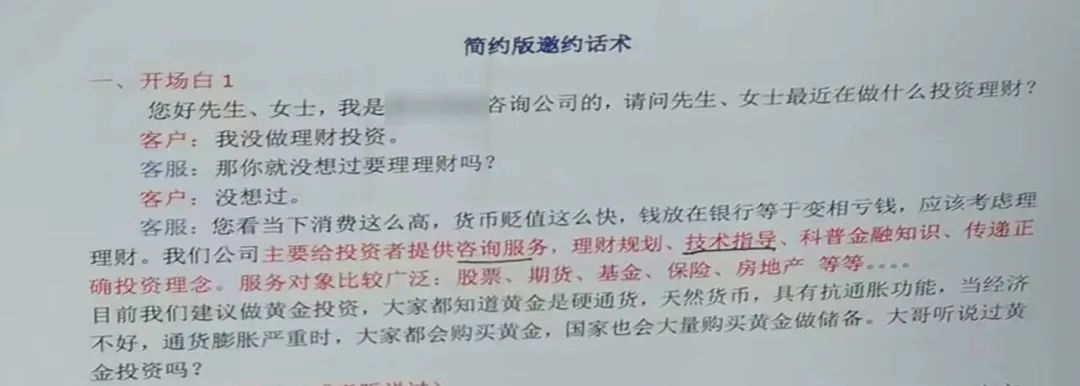 简约版邀约话术
一、开场白1
您好先生、女士，我是咨询公司的，请问先生、女士最近在做什么投资理财？
客户：我没做理财投资。
客服：那你就没想过要理理财吗？
客户：没想过。
客服：您看当下消费这么高，货币贬值这么快，钱放在银行等于变相亏钱，应该考虑理
理财。我们公司主要给投资者提供咨询服务，理财规划、技术指导、科普金融知识、传递正
确投资理念。服务对象比较广泛：股票、期货、基金、保险、房地产 等等。。。。
目前我们建议做黄金投资，大家都知道黄金是硬通货，天然货币，具有抗通胀功能，当经济
不好，通货膨胀严重时，大家都会购买黄金，国家也会大量购买黄金做储备。大哥听说过黄
金投资吗？